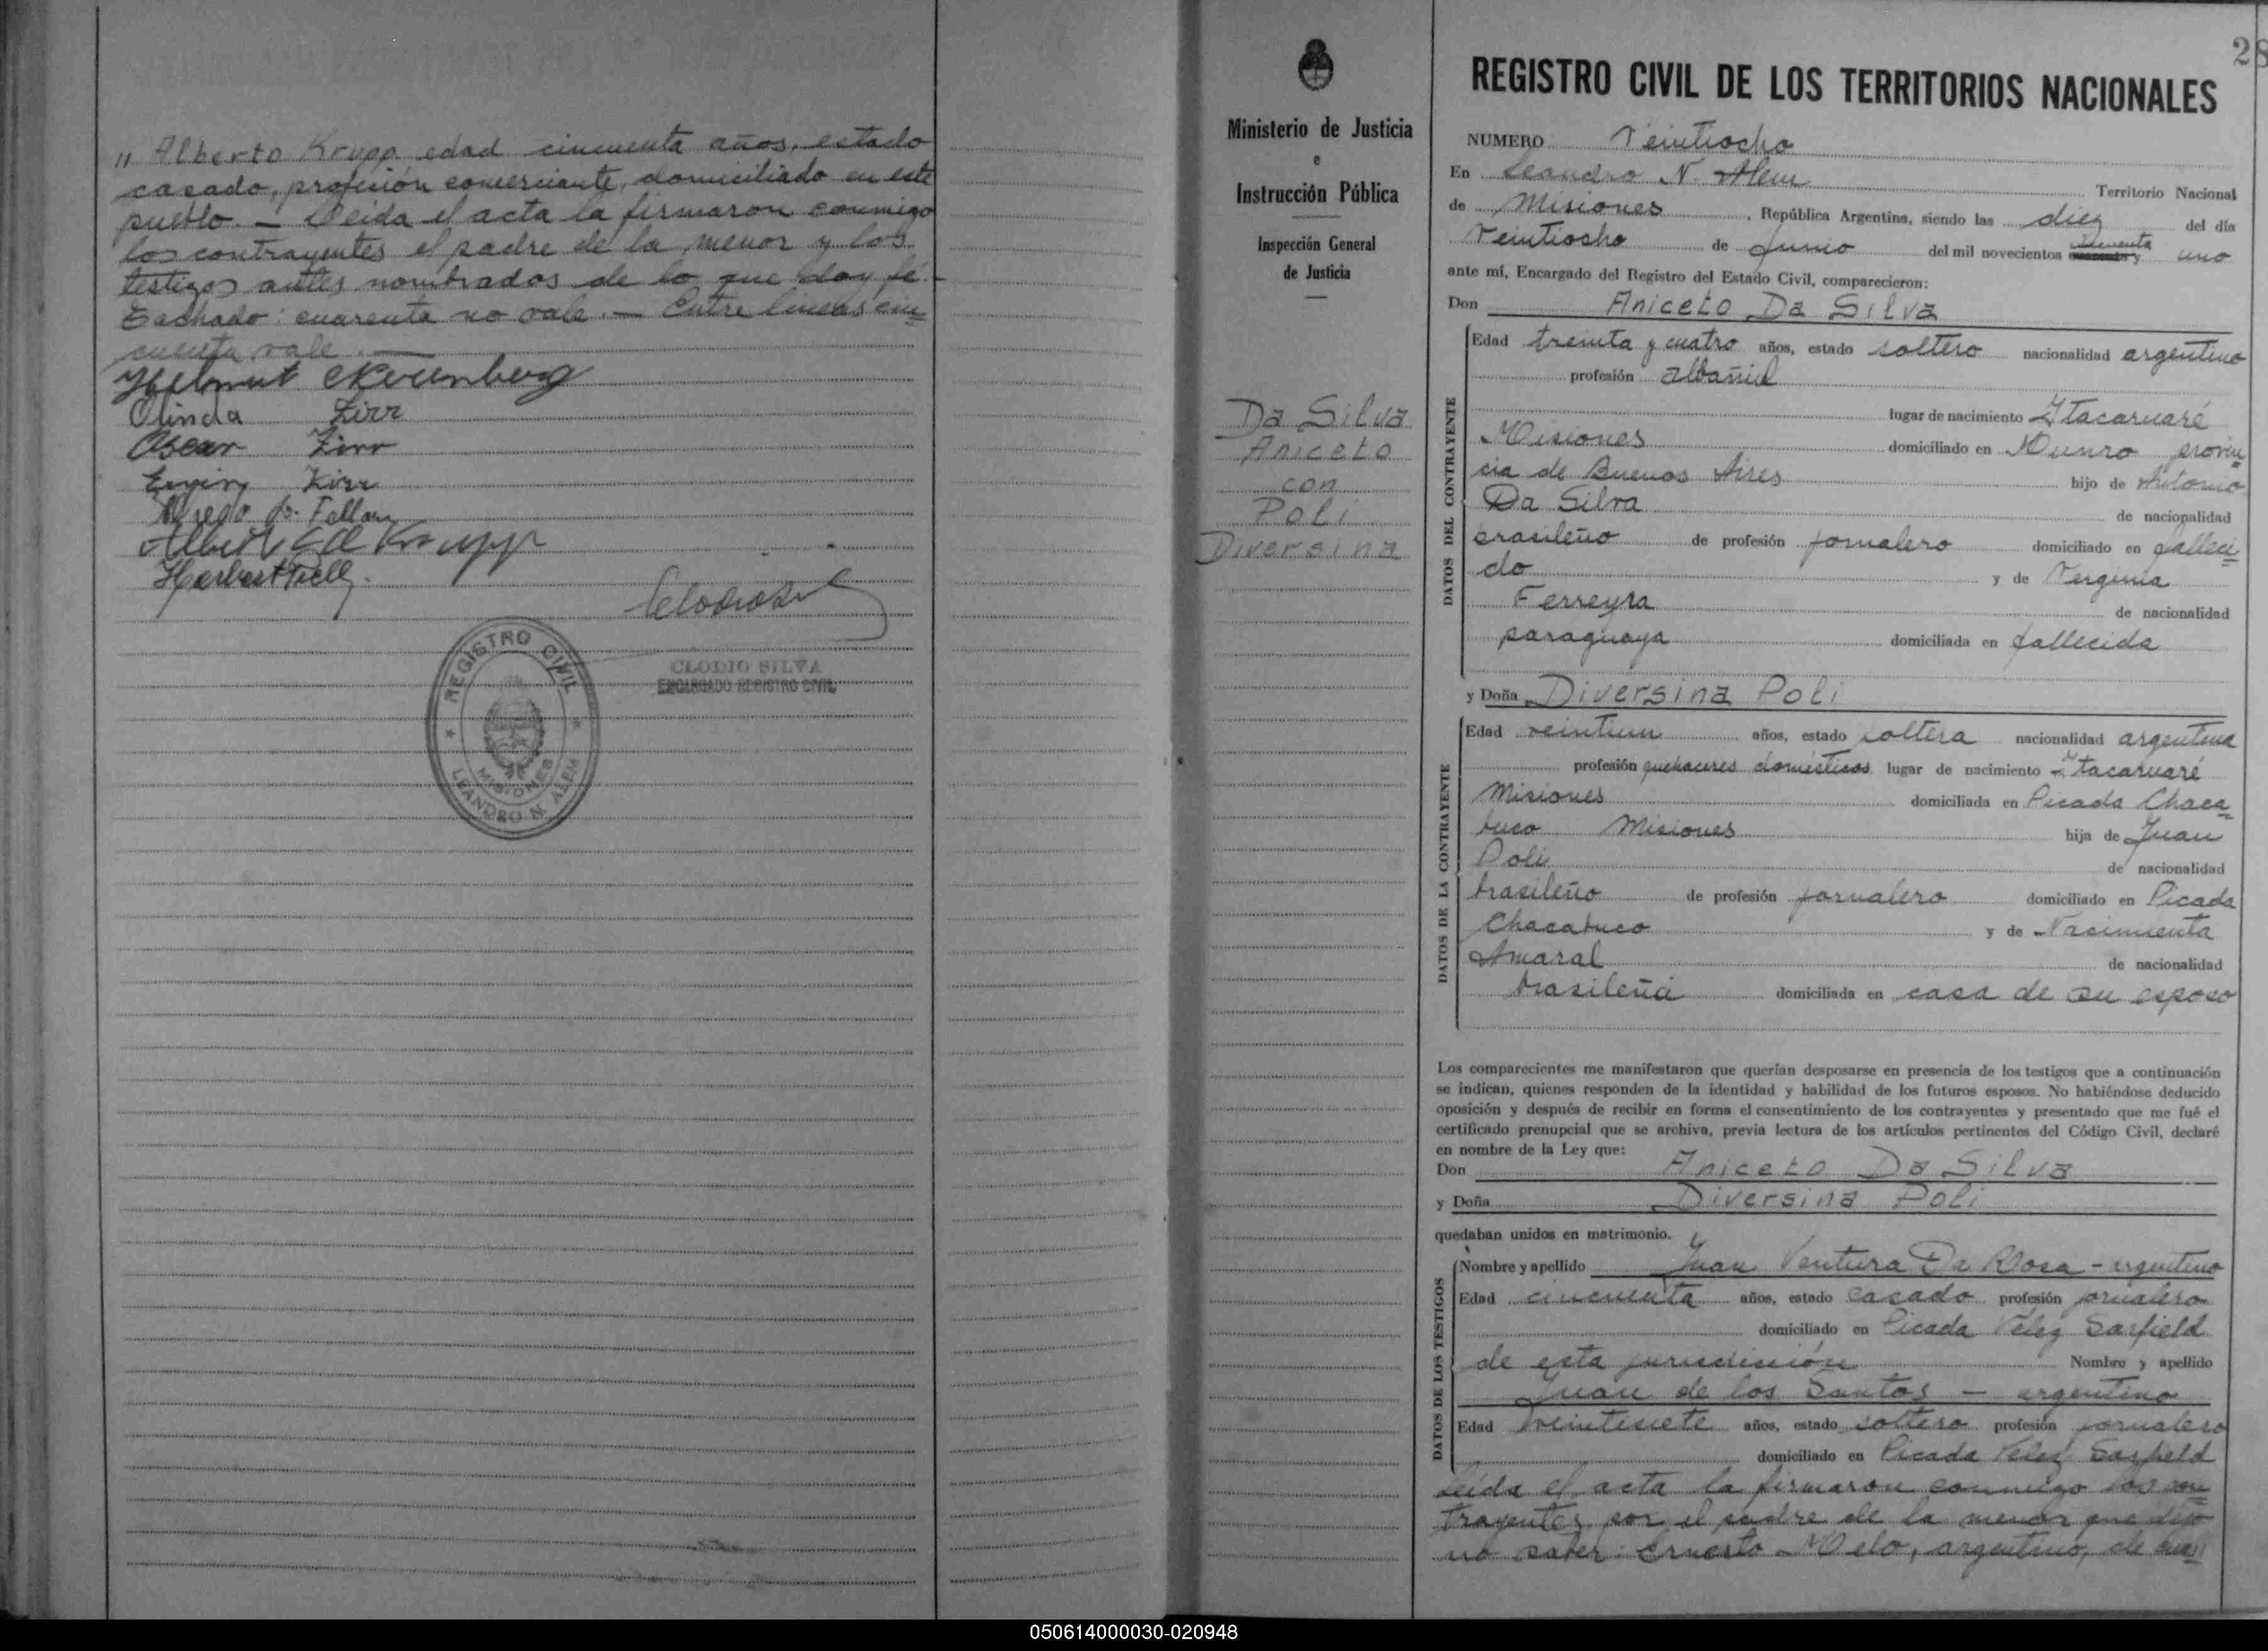 " Alberto Krupp edad cincuenta años, estado
casado, profesión comerciante, domiciliado en este
pueblo. — Leida el acta la firmaron conmigo
los contrayentes el padre de la menor y los
testigos antes nombrados de lo que doy fé.
Tachado: cuarenta no vale. — Entre lineas cin=
cuenta vale. —
Helmut
Olinda Zirr
Oscar Zirr
Erving Zirr
Krupp
Herbert
REGISTRO CIVIL
MISIONES
LEANDRO N. ALEM
CLODIO SILVA
ENCARGADO REGISTRO CIVIL
Ministerio de Justicia
e
Instrucción Pública
Inspección General
de Justicia
Da Silva
Aniceto
con
Poli
Diversina
28
REGISTRO CIVIL DE LOS TERRITORIOS NACIONALES
NUMERO Veintiocho
En Leandro N. Alem Territorio Nacional
de Misiones, República Argentina, siendo las diez del día
Veintiocho de Junio del mil novecientos cincuenta uno
ante mí, Encargado del Registro del Estado Civil, comparecieron:
Don Aniceto Da Silva
DATOS DEL CONTRAYENTE
Edad treinta y cuatro años, estado soltero nacionalidad argentino
profesión albañil
lugar de nacimiento Itacaruaré
Misiones domiciliado en Munro provin=
cia de Buenos Aires hijo de Antonio
Da Silva de nacionalidad
brasileño de profesión jornalero domiciliado en falleci=
do y de Verginia
Ferreyra de nacionalidad
paraguaya domiciliada en fallecida
y Doña Diversina Poli
DATOS DE LA CONTRAYENTE
Edad veintiun años, estado soltera nacionalidad argentina
profesión quehaceres domésticos lugar de nacimiento Itacaruaré
Misiones domiciliada en Picada Chaca=
buco Misiones hija de Juan
Poli de nacionalidad
brasileño de profesión jornalero domiciliado en Picada
Chacabuco y de Nacimienta
Amaral de nacionalidad
brasileña domiciliada en casa de su esposo
Los comparecientes me manifestaron que querían desposarse en presencia de los testigos que a continuación
se indican, quienes responden de la identidad y habilidad de los futuros esposos. No habiéndose deducido
oposición y después de recibir en forma el consentimiento de los contrayentes y presentado que me fué el
certificado prenupcial que se archiva, previa lectura de los artículos pertinentes del Código Civil, declaré
en nombre de la Ley que:
Don Aniceto Da Silva
y Doña Diversina Poli
quedaban unidos en matrimonio.
DATOS DE LOS TESTIGOS
Nombre y apellido Juan Ventura Da Rosa - argentino
Edad cincuenta años, estado casado profesión jornalero
domiciliado en Picada Velez Sarfield
de esta jurisdicción Nombre y apellido
Juan de los Santos — argentino
Edad veintisiete años, estado soltero profesión jornalero
domiciliado en Picada Velez Sarfield
Leida el acta la firmaron conmigo los con=
trayentes por el padre de la menor que dijo
no saber: Ernesto Melo, argentino, de
050614000030-020948